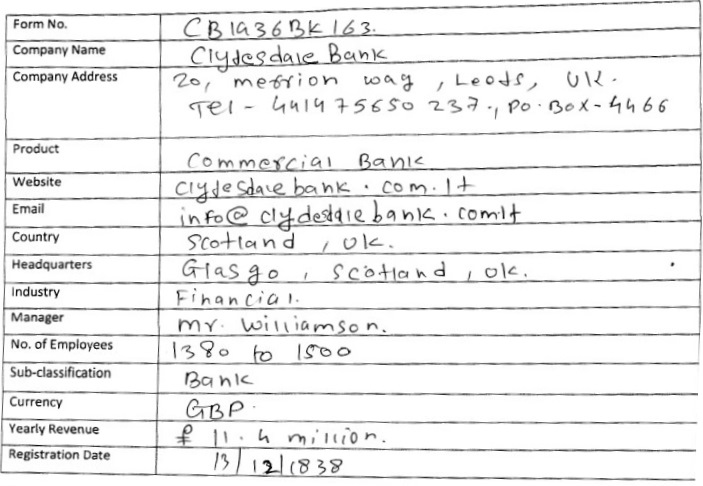 Form No. CB1936BK163.
Company Name Clydesdale Bank
Company Address 20, merrion way, Leeds, UK.
Tel - 441475650 237., PO. Box - 4466
Product Commercial Bank
Website Clydesdale bank. com. lt
Email info@ clydesdale bank. comlt
Country Scotland, UK.
Headquarters Glasgo, Scotland, UK.
Industry Financial.
Manager mr. Williamson.
No. of Employees 1380 to 1500
Sub-classification Bank
Currency GBP.
Yearly Revenue £ 11.4 million.
Registration Date 13/12/1838